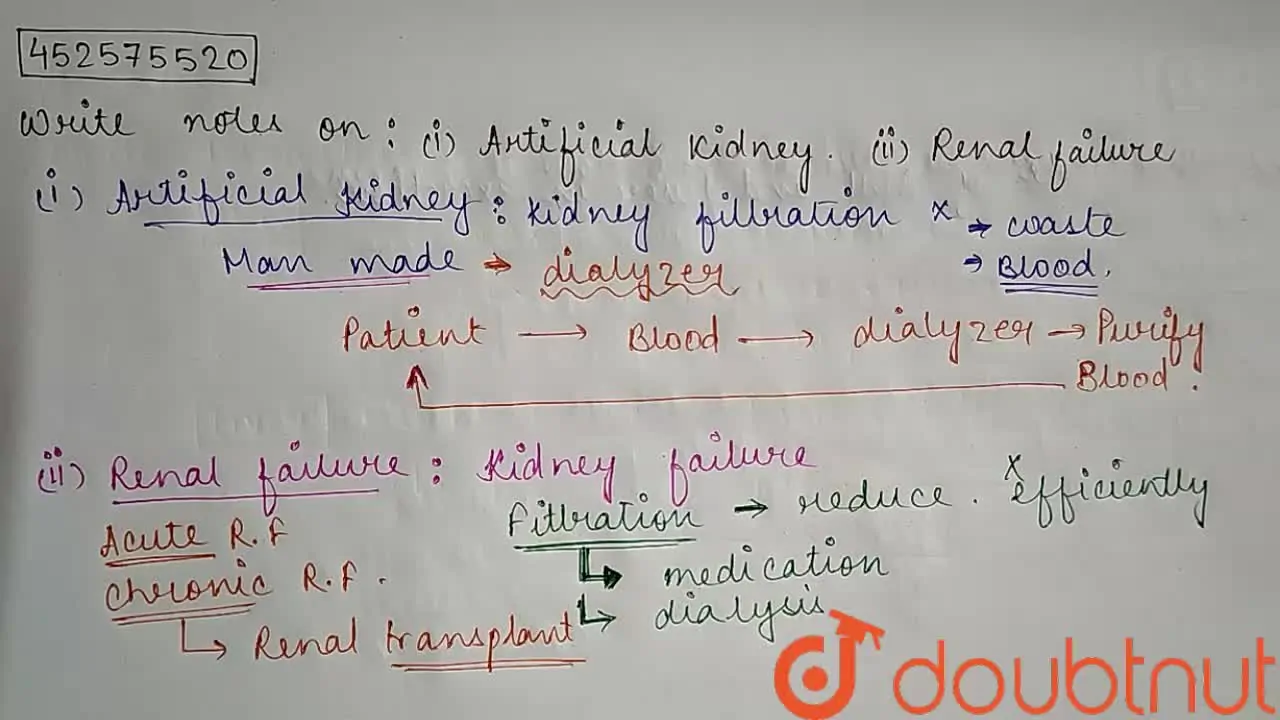 452575520
Write notes on : (i) Artificial Kidney. (ii) Renal failure
(i) Artificial Kidney : Kidney filtration x → waste
→ Blood.
Man made → dialyzer
Patient → Blood → dialyzer → Purify
Blood.
(ii) Renal failure : Kidney failure
Filtration → reduce. x efficiently
Acute R.F
Chronic R.F.
→ medication
→ dialysis
→ Renal transplant
doubtnut